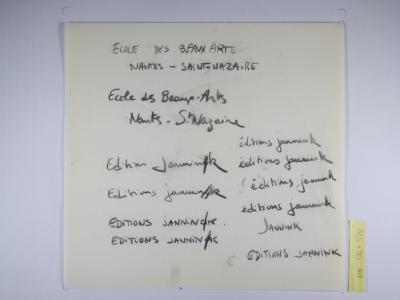 ECOLE DES BEAUX ARTS
NANTES – SAINT NAZAIRE
Ecole des Beaux-Arts
Nantes - St Nazaire
éditions jannink
Edition Jannink
éditions jannink
Editions jannink
éditions jannink
éditions jannink
EDITIONS JANNINK.
JANNINK
EDITIONS JANNINK
EDITIONS JANNINK